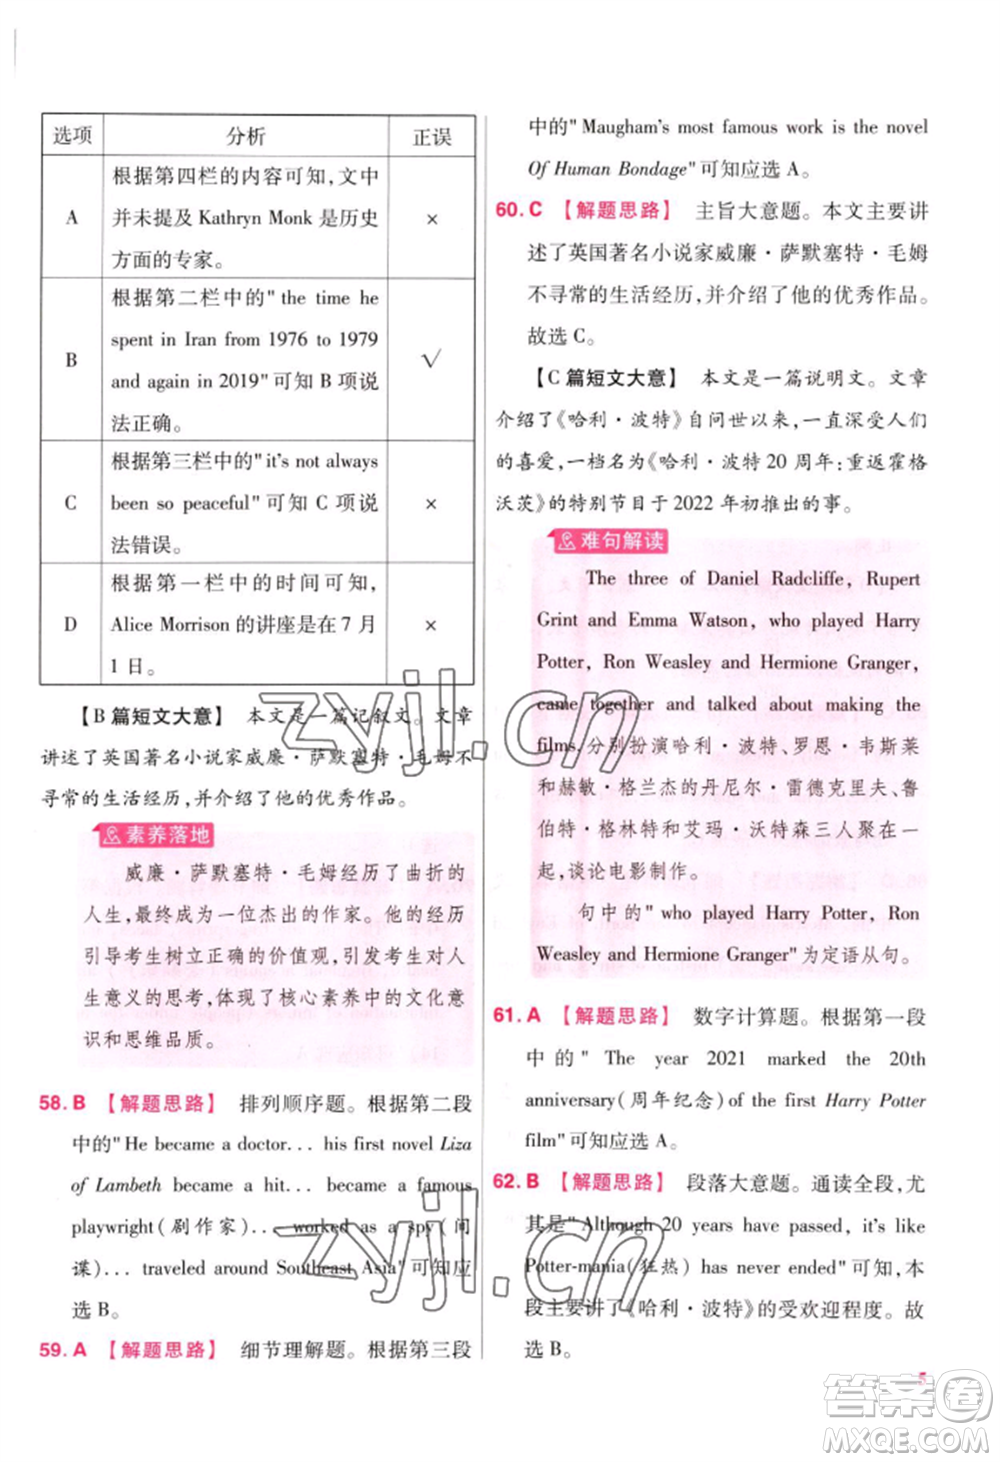 选项 分析 正误
A 根据第四栏的内容可知,文中
并未提及 Kathryn Monk 是历史 ×
方面的专家。
B 根据第二栏中的" the time he
spent in Iran from 1976 to 1979
and again in 2019"可知 B 项说 √
法正确。
C 根据第三栏中的" it's not always
been so peaceful" 可知 C 项说 ×
法错误。
D 根据第一栏中的时间可知,
Alice Morrison 的讲座是在 7 月 ×
1 日。
【B 篇短文大意】 本文是一篇记叙文。文章
讲述了英国著名小说家威廉·萨默塞特·毛姆不
寻常的生活经历,并介绍了他的优秀作品。
素养落地
威廉·萨默塞特·毛姆经历了曲折的
人生,最终成为一位杰出的作家。他的经历
引导考生树立正确的价值观,引发考生对人
生意义的思考,体现了核心素养中的文化意
识和思维品质。
58. B 【解题思路】 排列顺序题。根据第二段
中的"He became a doctor... his first novel Liza
of Lambeth became a hit... became a famous
playwright(剧作家)... worked as a spy(间
谍)... traveled around Southeast Asia" 可知应
选 B。
59. A 【解题思路】 细节理解题。根据第三段
中的" Maugham's most famous work is the novel
Of Human Bondage"可知应选 A。
60. C 【解题思路】 主旨大意题。本文主要讲
述了英国著名小说家威廉·萨默塞特·毛姆
不寻常的生活经历,并介绍了他的优秀作品。
故选 C。
【C 篇短文大意】 本文是一篇说明文。文章
介绍了《哈利·波特》自问世以来,一直深受人们
的喜爱,一档名为《哈利·波特 20 周年:重返霍格
沃茨》的特别节目于 2022 年初推出的事。
难句解读
The three of Daniel Radcliffe, Rupert
Grint and Emma Watson, who played Harry
Potter, Ron Weasley and Hermione Granger,
came together and talked about making the
films,分别扮演哈利·波特、罗恩·韦斯莱
和赫敏·格兰杰的丹尼尔·雷德克里夫、鲁
伯特·格林特和艾玛·沃特森三人聚在一
起,谈论电影制作。
句中的" who played Harry Potter, Ron
Weasley and Hermione Granger"为定语从句。
61. A 【解题思路】 数字计算题。根据第一段
中的" The year 2021 marked the 20th
anniversary(周年纪念) of the first Harry Potter
film"可知应选 A。
62. B 【解题思路】 段落大意题。通读全段,尤
其是"Although 20 years have passed, it's like
Potter-mania(狂热) has never ended"可知,本
段主要讲了《哈利·波特》的受欢迎程度。故
选 B。
5
zyjl.cn
zyjl.cn
答案圈
MXQE.COM